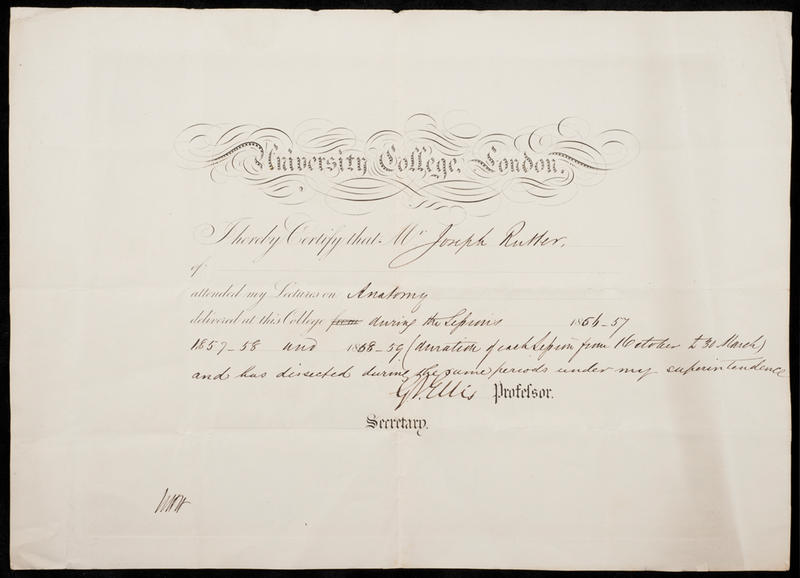 University College, London.
I hereby Certify that Mr Joseph Rutter,
of
attended my Lectures on Anatomy
delivered at this College from during the Sessions 1856-57
1857-58 and 1858-59 (duration of each Session from 1 October to 30 March)
and has dissected during the same periods under my superintendence
G V. Ellis Professor.
Secretary.